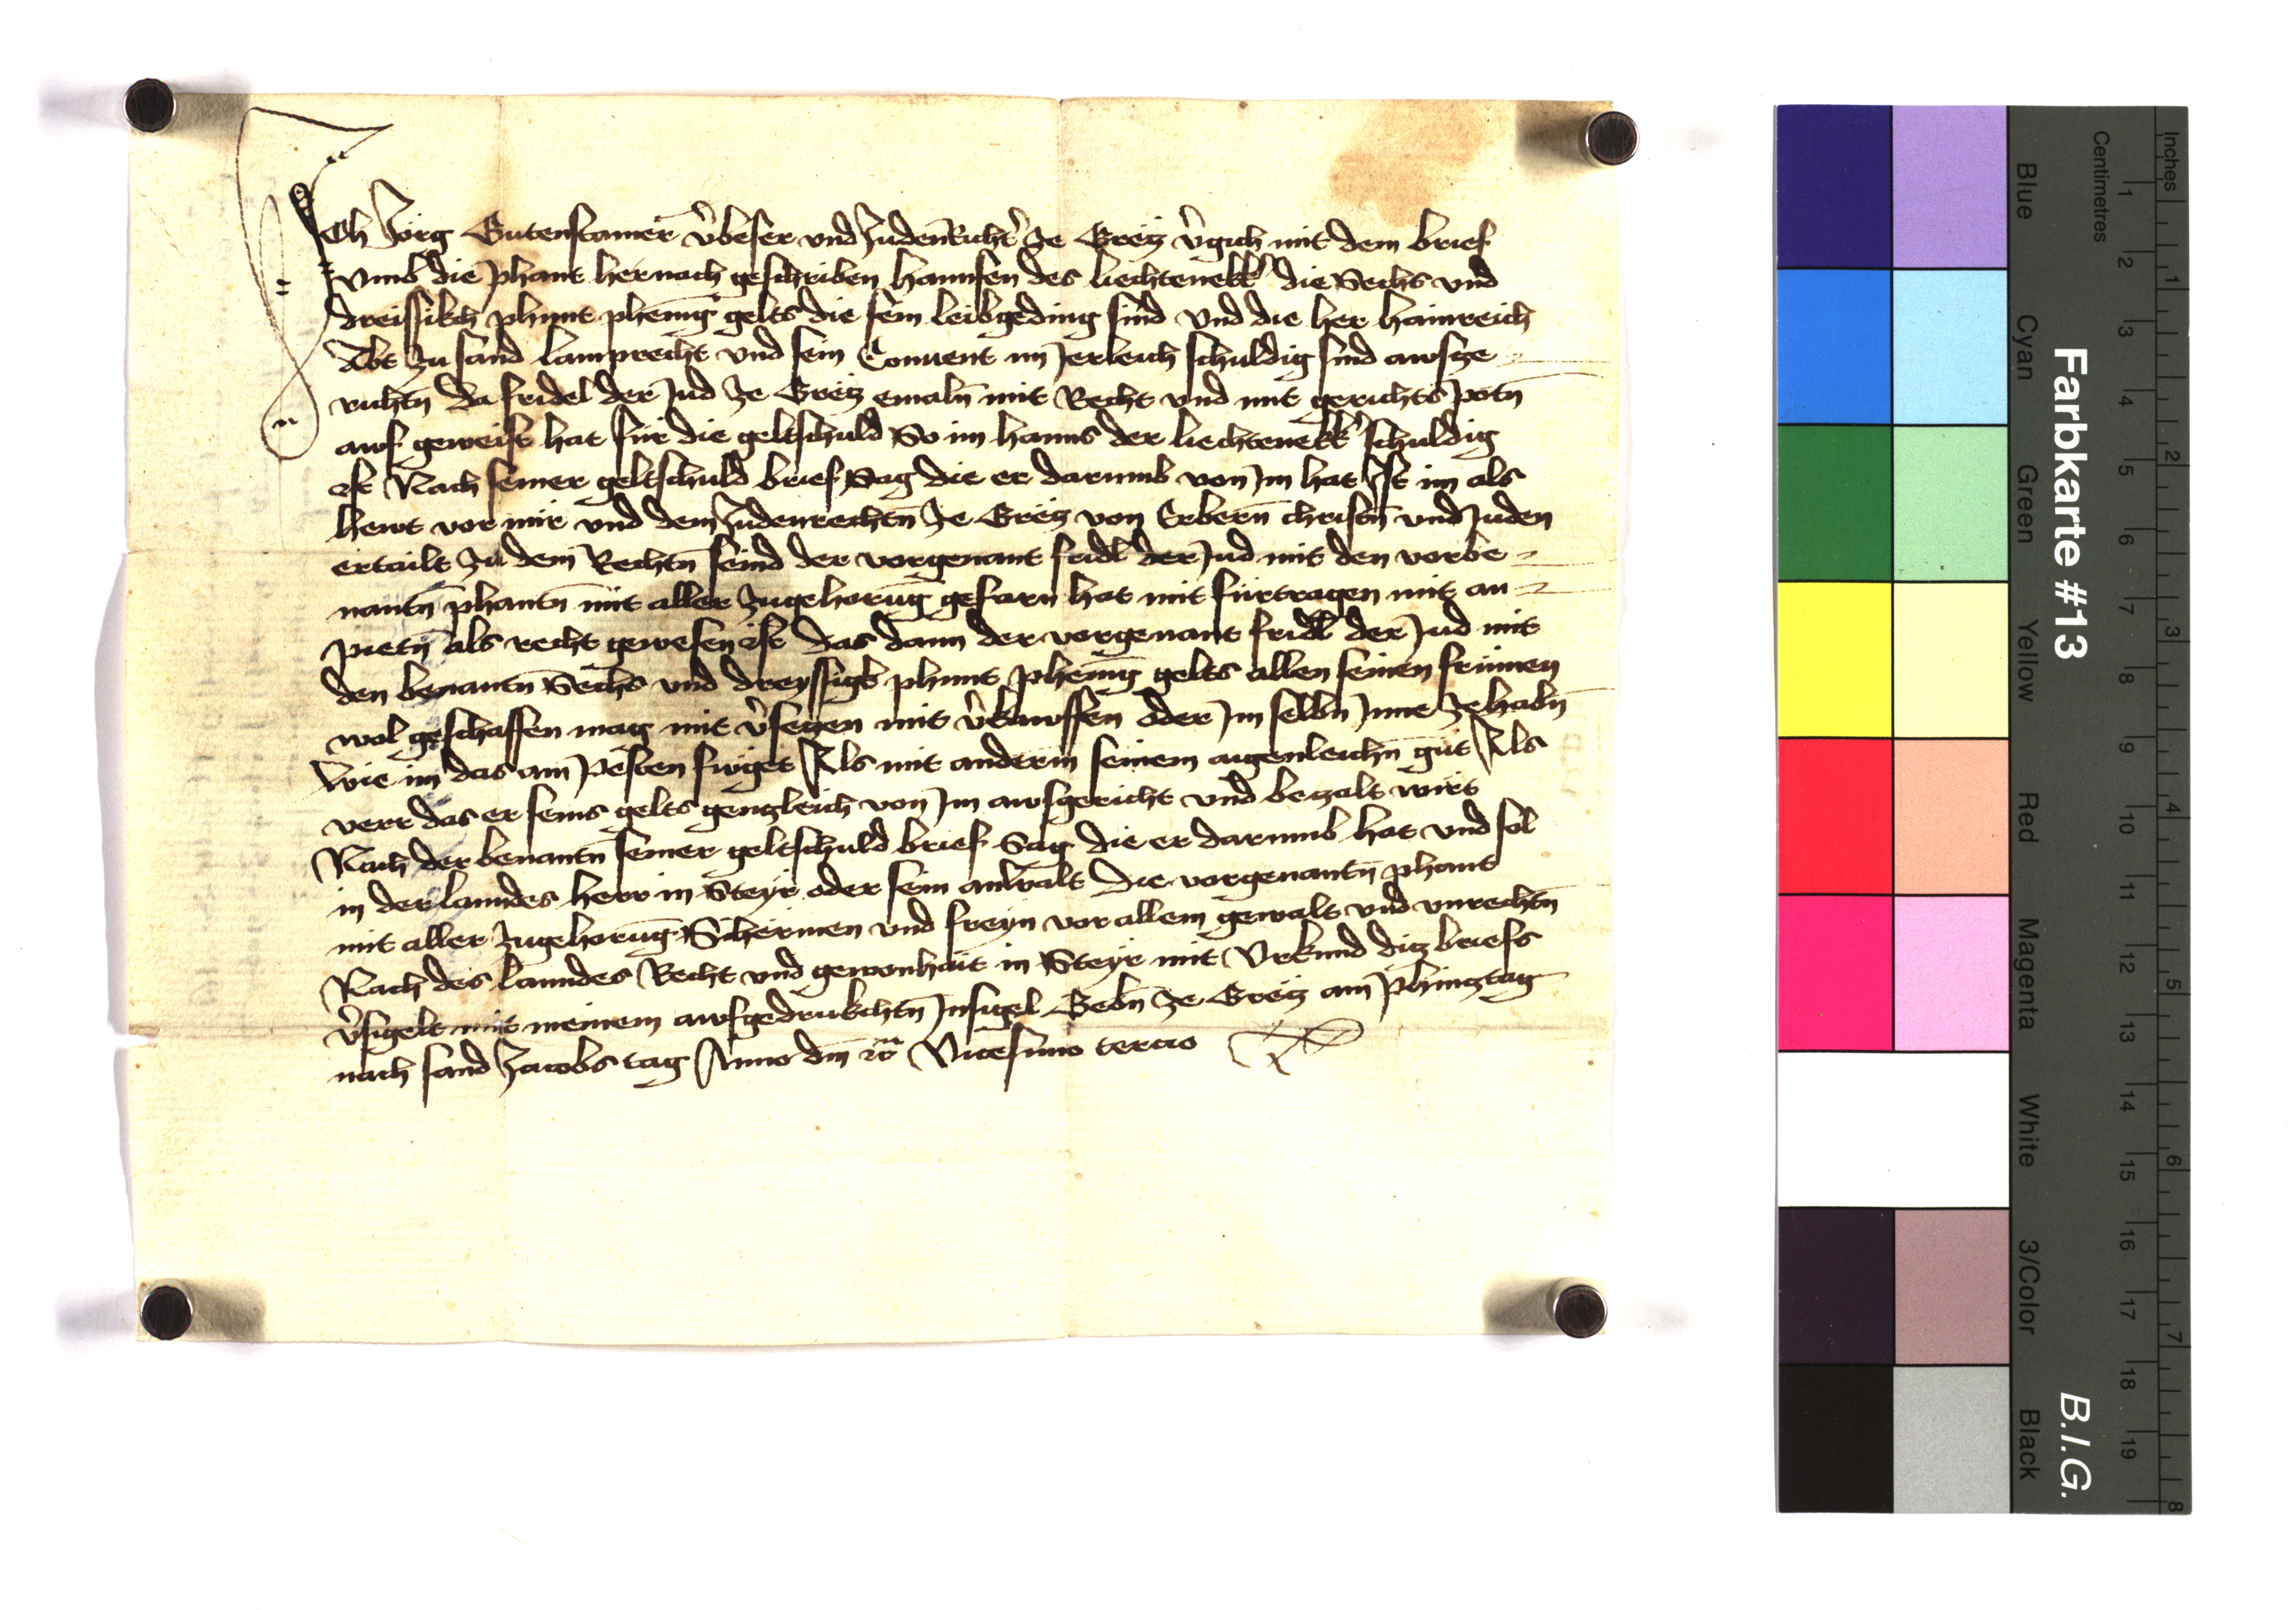 Ich Jörg Gutenstainer v̾beser vnd Judenricht̾ ze Grëtz v̾gich mit dem brief
vmb die phant hernach geschriben hannsen des liechtenekk̾ die Sechs vnd
dreissikch phunt phennīg gelts die sein leibgeding sind vnd die her hainreich
Abt zu sand lamprecht vnd sein Conuent im Jerleich schuldig sind awsze
richtn̄ da fridel der Jud ze Grëtz emaln̄ mit Recht vnd mit gerichts potn̄
auf geweist hat für die geltschuld So im hanns der liechtenekk̾ schuldig
ist Nach seiner geltschuld brief Sag die er darumb von Jm hat Jst im als
hewt vor mir vnd dem Judenrechtn̄ ze Grëtz von Erbern̄ christn̄ vnd Juden
ertailt zu dem Rechtn̄ seind der vorgenant fridl der Jud mit den vorbe
nantn̄ phantn̄ mit aller zugehorūg gefarn hat mit fürtragen mit an
pietn̄ als recht gewesen ist das dann der vorgenant fridl der Jud mit
den benantn̄ Sechs vnd dreyssigk phunt phennīg gelts allen seinen frumen
wol geschaffen mag mit v̾setzen mit v̾kauffen oder Jm selbn̄ Jnne ze habn̄
wie im das am pesten fuget Als mit anderm seinem aigenleichn̄ gut Als
verr das er seins gelts gentzleich von Jm awsgericht vnd betzalt wirt
Nach der benantn̄ seiner geltschuld brief Sag die er darumb hat vnd sol
in der lanndes herr in Steyr oder sein anwalt die vorgenantn̄ phant
mit aller zugehorūg Schermen vnd freyn vor allem gewalt vnd vnrechtn̄
Nach des lanndes Recht vnd gewonhait in Steyr mit Vrkund ditz briefs
v̾sigelt mit meinem aufgedrukchtn̄ Jnsigel Gebn̄ ze Grëtz am Phingztag
nach sand Jacobs tag Anno dm̄ Vicesimo tercio
Farbkarte #13
B.I.G.
Inches 1 2 3 4 5 6 7 8
Centimetres 1 2 3 4 5 6 7 8 9 10 11 12 13 14 15 16 17 18 19
Blue Cyan Green Yellow Red Magenta White 3/Color Black